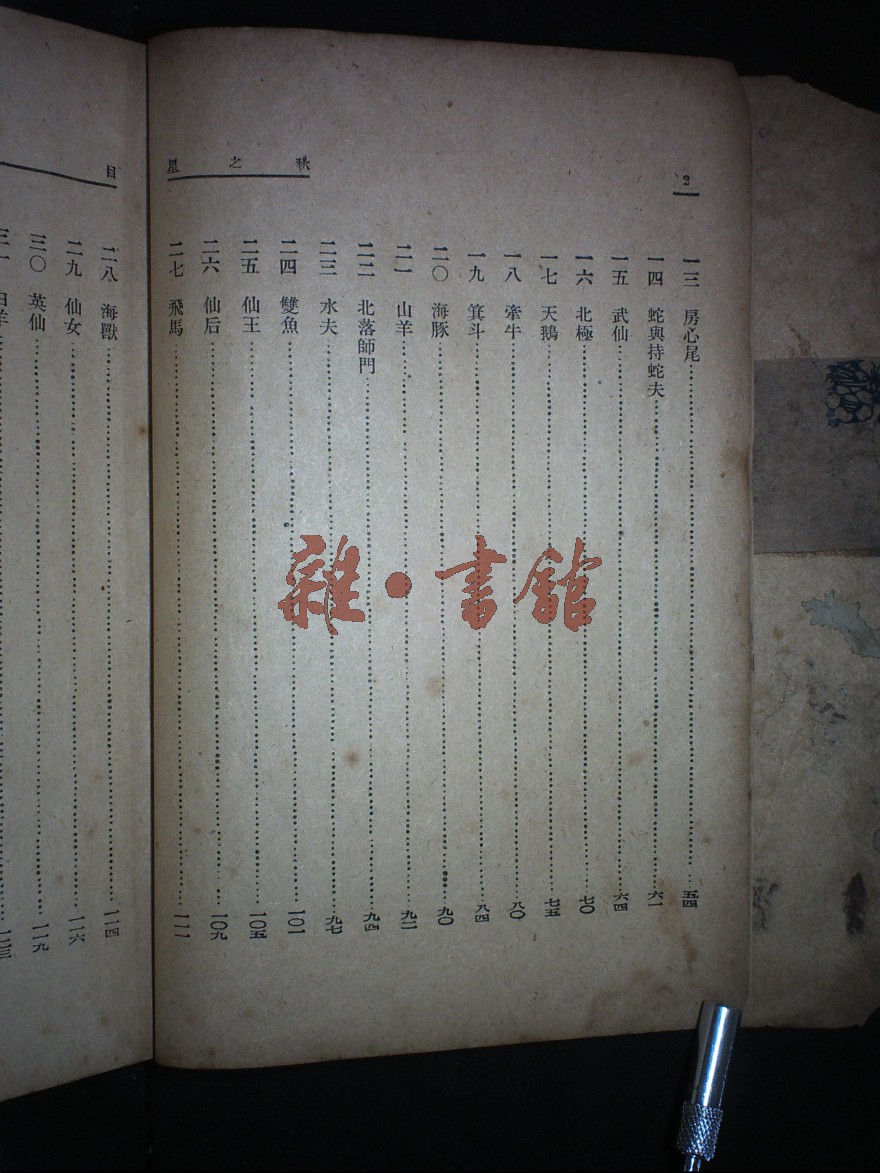 2
秋之星
一三 房心尾 五四
一四 蛇與持蛇夫 六一
一五 武仙 六四
一六 北極 七〇
一七 天鵝 七五
一八 牽牛 八〇
一九 箕斗 八四
二〇 海豚 九〇
二一 山羊 九二
二二 北落師門 九四
二三 水夫 九七
二四 雙魚 一〇一
二五 仙王 一〇五
二六 仙后 一〇九
二七 飛馬 一一一
目
二八 海獸 一一四
二九 仙女 一一六
三〇 英仙 一一九
三一 白羊 一二三
雜·書館